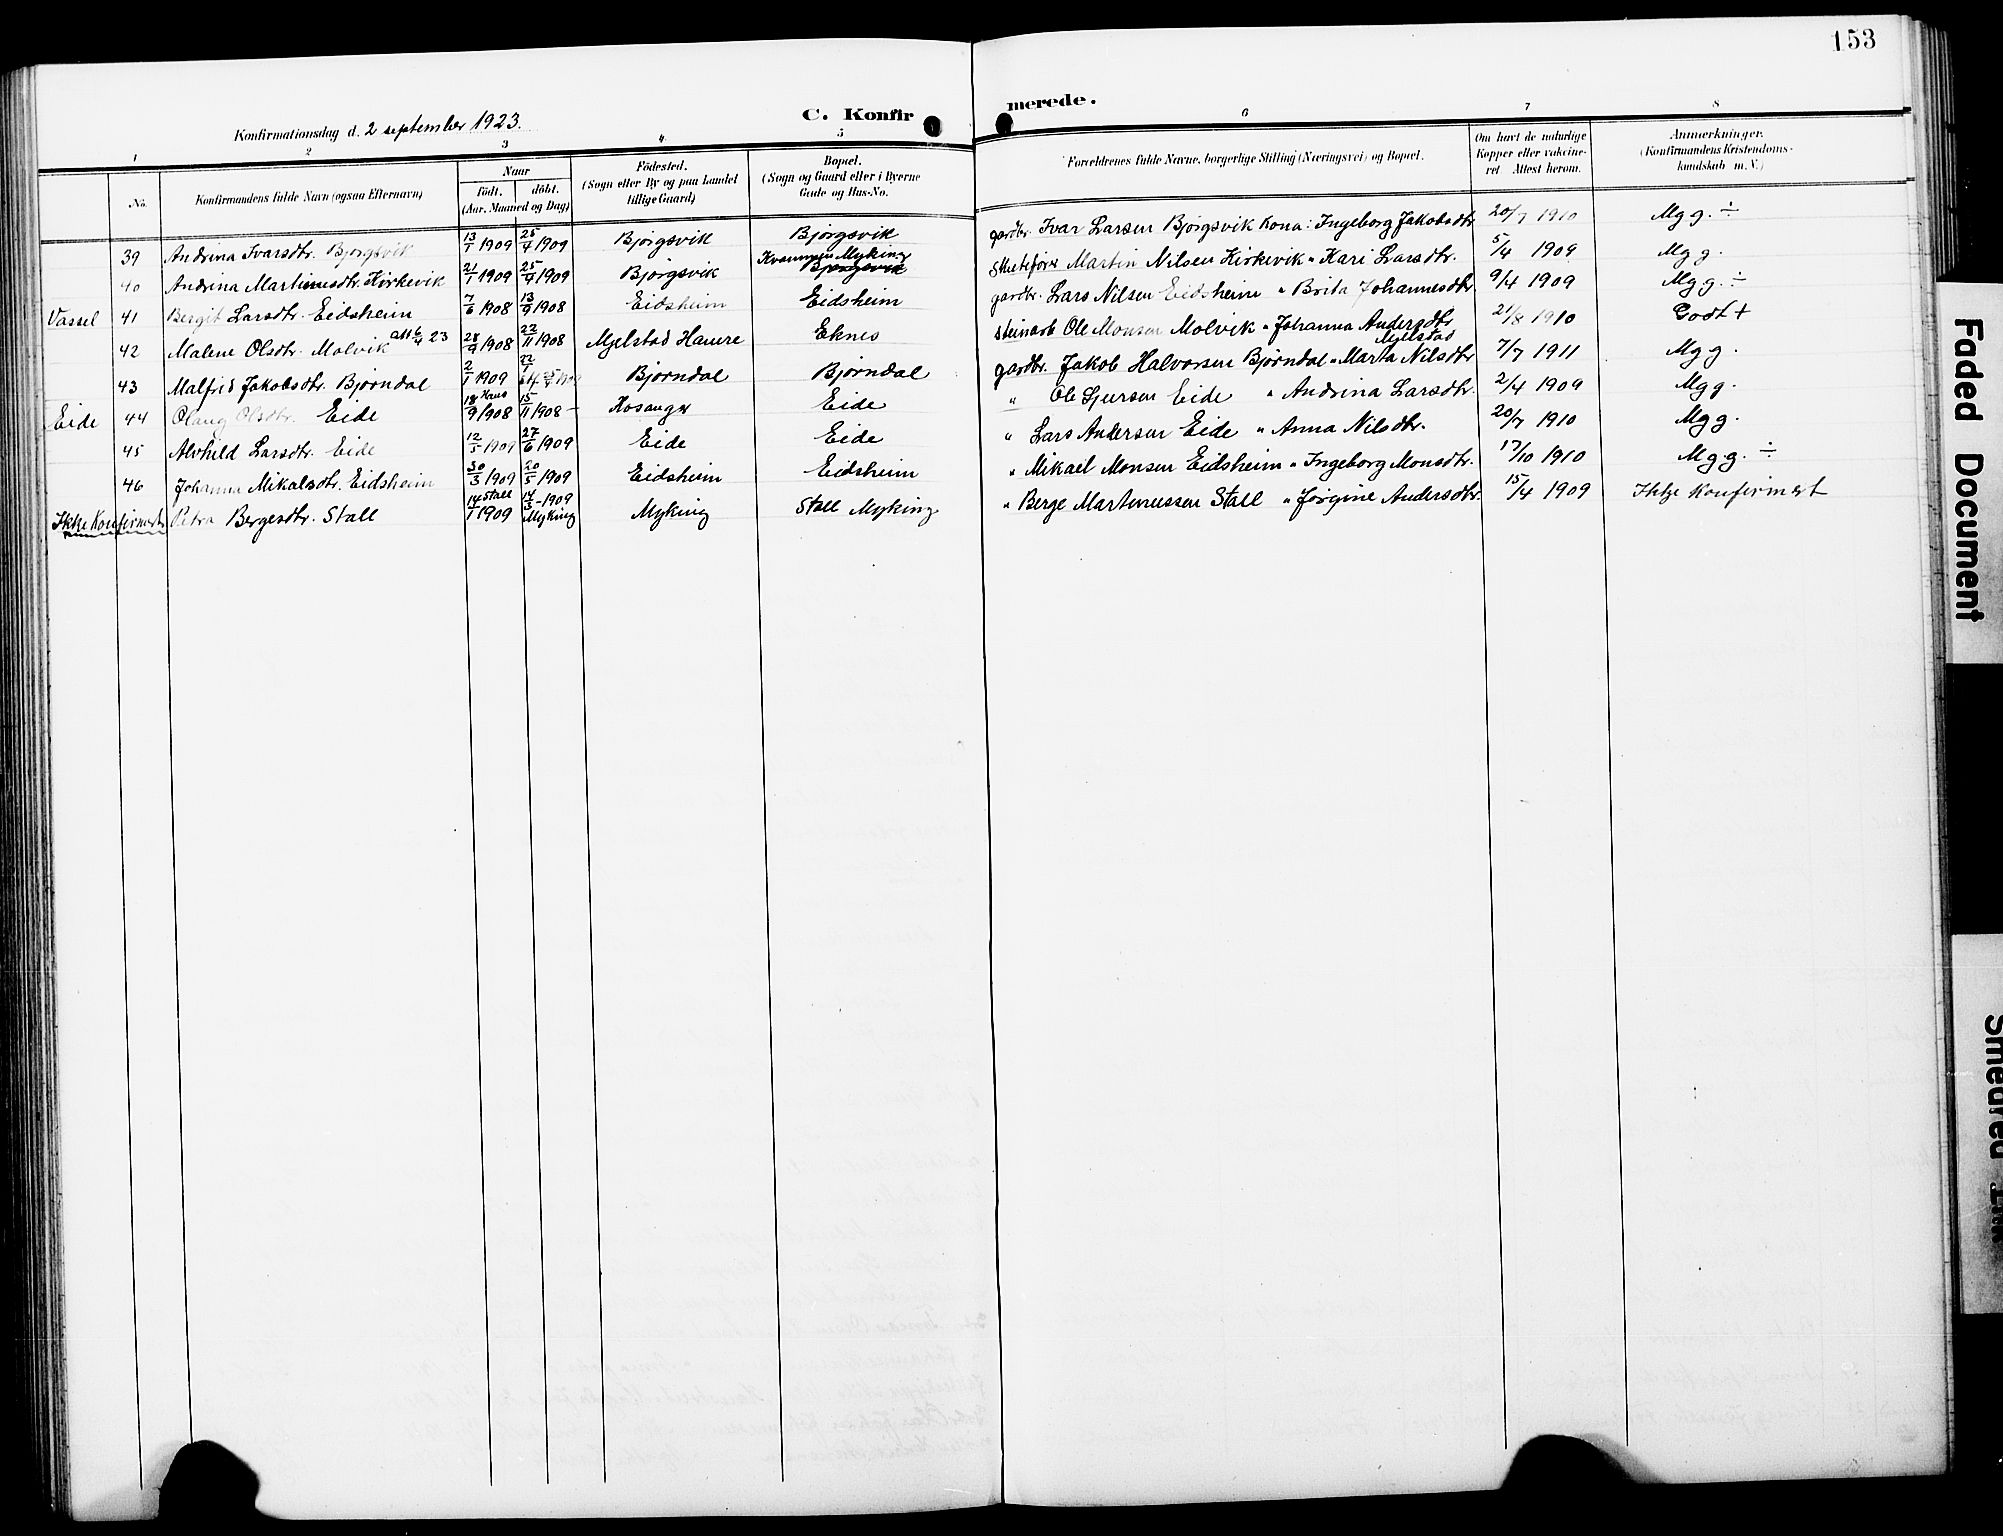 153
C. Konfirmerede.
Konfirmationsdag d. 2 september 1923.
1 2 3 4 5 6 7 8
No. Konfirmandens fulde Navn (ogsaa Efternavn) Naar født. døbt. (Aar, Maaned og Dag) Födested. (Sogn eller By og paa Landet tillige Gaard) Bopæl. (Sogn og Gaard eller i Byerne Gade og Hus-No. Forældrenes fulde Navne, borgerlige Stilling (Næringsvei) og Bopæl. Om havt de naturlige Kopper eller vakcineret Attest herom. Anmærkninger. (Konfirmandens Kristendomskundskab m. V.)
39 Andrina Ivarsdtr. Bjørgsvik 13/1 1909 25/4 1909 Bjørgsvik Bjørgsvik gardbr. Ivar Larsen Bjørgsvik Kona: Ingeborg Jakobsdtr 20/7 1910 Mg g. ÷
40 Andrina Martinusdtr. Kirkevik 21/1 1909 25/4 1909 Bjørgsvik Kvammen Myking Bjørgsvik Martin Nilsen Kirkevik " Kari Larsdtr. 5/4 1909 Mg g.
Vassel 41 Bergit Larsdtr. Eidsheim 7/6 1908 13/9 1908 Eidsheim Eidsheim gardbr. Lars Nilsen Eidsheim " Brita Johannesdtr 9/4 1909 Mg g. ÷
42 Malene Olsdtr. Molvik att 6/4 23 28/9 1908 22/11 1908 Mjelstad Hamre Eknes steinarb Ole Monsen Molvik " Johanna Andersdtr Mjelstad 21/8 1910 Godt +
43 Malfrid Jakobsdtr. Bjørndal 2/1 1909 22/1 Bjørndal Bjørndal gardbr. Jakob Halvorsen Bjørndal " Marta Nilsdtr 7/7 1911 Mg g.
Eide 44 Olaug Olsdtr. Eide 18/9 1908 Haus 15/11 1908 Hosanger Eide " Ole Sjursen Eide " Andrina Larsdtr. 2/4 1909 Mg g.
45 Alvhild Larsdtr. Eide 12/5 1909 27/6 1909 Eide Eide " Lars Andersen Eide " Anna Nilsdtr. 20/7 1910 Mg g.
46 Johanna Mikalsdtr. Eidsheim 30/3 1909 20/5 1909 Eidsheim Eidsheim " Mikael Monsen Eidsheim " Ingeborg Monsdtr. 17/10 1910 Mg g. ÷
Ikkje Konfirmert Petra Bergesdtr. Stall 14/1 1909 Stall 14/3 1909 Myking Myking Stall Myking " Berge Martinussen Stall " Jørgine Andersdtr. 15/4 1909 Ikkje Konfirmert
Faded Document
Smeared Ink